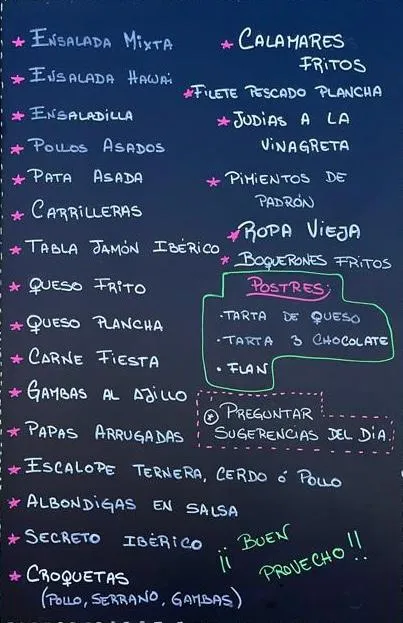 * ENSALADA MIXTA
* ENSALADA HAWAi
* ENSALADILLA
* POLLOS ASADOS
* PATA ASADA
* CARRILLERAS
* TABLA JAMÓN IBÉRICO
* QUESO FRITO
* QUESO PLANCHA
* CARNE FIESTA
* GAMBAS AL AJILLO
* PAPAS ARRUGADAS
* ESCALOPE TERNERA, CERDO ó POLLO
* ALBONDIGAS EN SALSA
* SECRETO IBÉRICO
* CROQUETAS
(POLLO, SERRANO, GAMBAS)
* CALAMARES
FRITOS
* FILETE PESCADO PLANCHA
* JUDIAS A LA
VINAGRETA
* PIMIENTOS DE
PADRÓN
* ROPA VIEJA
* BOQUERONES FRITOS
POSTRES:
·TARTA DE QUESO
·TARTA 3 CHOCOLATE
· FLAN
* PREGUNTAR
SUGERENCIAS DEL DIA.
¡¡ BUEN
PROVECHO!!